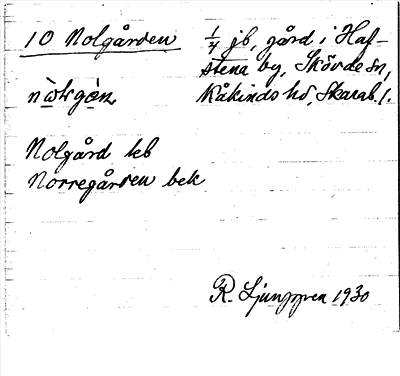 10 Nolgården
1/4 jb, gård i Haf-
stena by, Skövde sn,
Kåkinds hd, Skarab. l.
Nolgård
Norregården bek
R. Ljunggren 1930